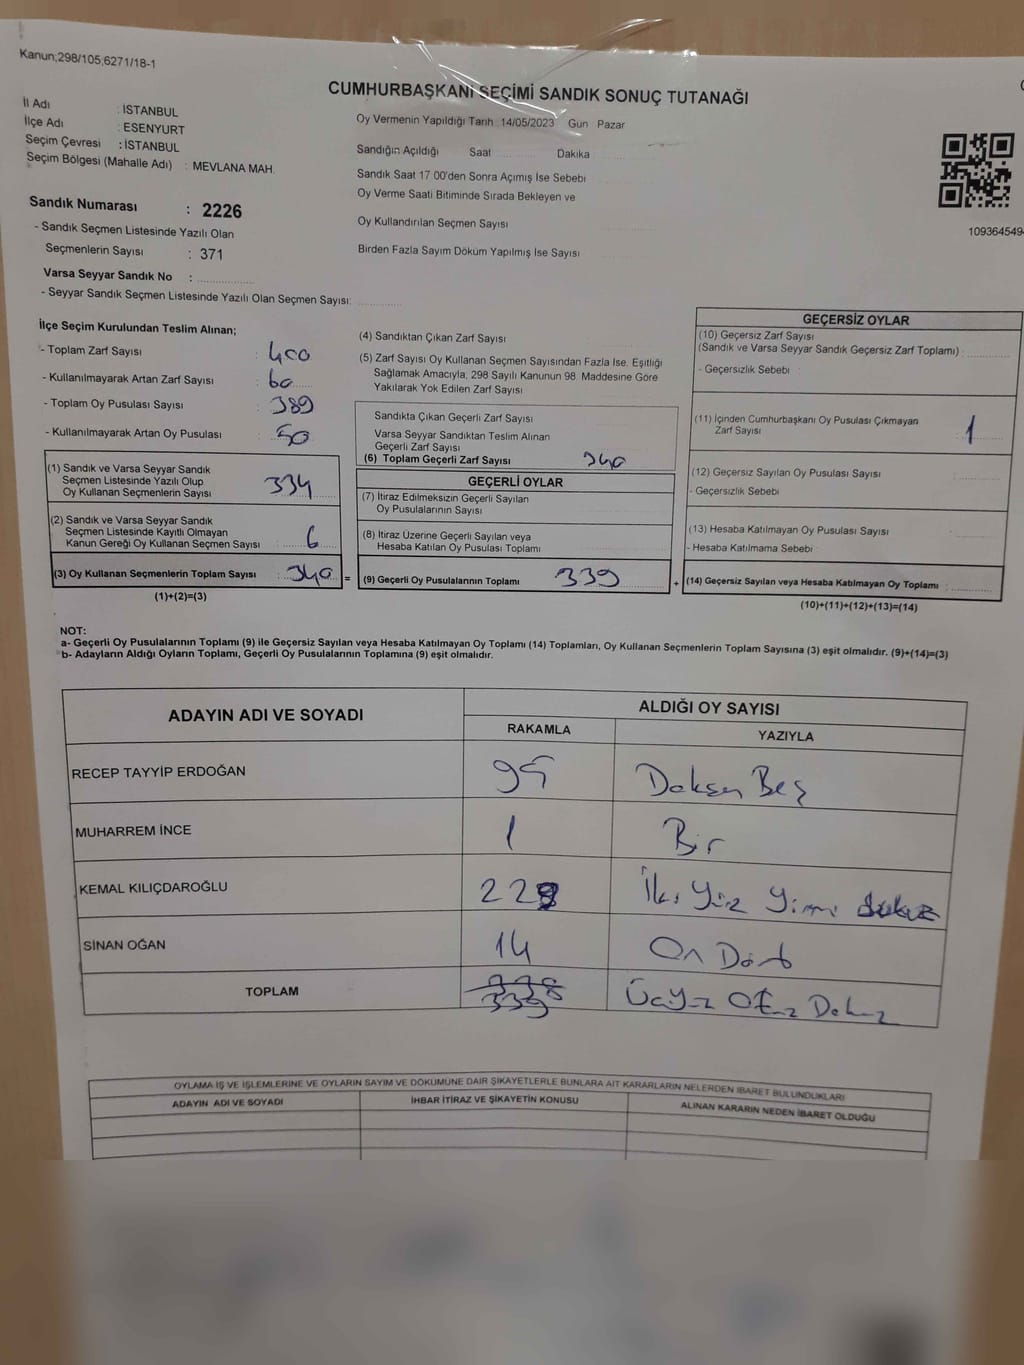 Kanun;298/105,6271/18-1
CUMHURBAŞKANİ SEÇİMİ SANDIK SONUÇ TUTANAĞI
İl Adı : İSTANBUL
İlçe Adı : ESENYURT
Seçim Çevresi : İSTANBUL
Seçim Bölgesi (Mahalle Adı) : MEVLANA MAH.
Oy Vermenin Yapıldığı Tarih : 14/05/2023 Gün : Pazar
Sandığın Açıldığı Saat Dakika
Sandık Saat 17 00'den Sonra Açımış İse Sebebi
Oy Verme Saati Bitiminde Sırada Bekleyen ve
Oy Kullandırılan Seçmen Sayısı
Birden Fazla Sayım Döküm Yapılmış İse Sayısı
109364549
Sandık Numarası : 2226
- Sandık Seçmen Listesinde Yazılı Olan
Seçmenlerin Sayısı : 371
Varsa Seyyar Sandık No :
- Seyyar Sandık Seçmen Listesinde Yazılı Olan Seçmen Sayısı:
İlçe Seçim Kurulundan Teslim Alınan;
- Toplam Zarf Sayısı : 400
- Kullanılmayarak Artan Zarf Sayısı : 60
- Toplam Oy Pusulası Sayısı : 389
- Kullanılmayarak Artan Oy Pusulası : 50
(1) Sandık ve Varsa Seyyar Sandık
Seçmen Listesinde Yazılı Olup
Oy Kullanan Seçmenlerin Sayısı 334
(2) Sandık ve Varsa Seyyar Sandık
Seçmen Listesinde Kayıtlı Olmayan
Kanun Gereği Oy Kullanan Seçmen Sayısı 6
(3) Oy Kullanan Seçmenlerin Toplam Sayısı : 340 =
(1)+(2)=(3)
(4) Sandıktan Çıkan Zarf Sayısı
(5) Zarf Sayısı Oy Kullanan Seçmen Sayısından Fazla İse, Eşitliği
Sağlamak Amacıyla, 298 Sayılı Kanunun 98. Maddesine Göre
Yakılarak Yok Edilen Zarf Sayısı
Sandıkta Çıkan Geçerli Zarf Sayısı
Varsa Seyyar Sandıktan Teslim Alınan
Geçerli Zarf Sayısı
(6) Toplam Geçerli Zarf Sayısı 340
GEÇERLİ OYLAR
(7) İtiraz Edilmeksizin Geçerli Sayılan
Oy Pusulalarının Sayısı
(8) İtiraz Üzerine Geçerli Sayılan veya
Hesaba Katılan Oy Pusulası Toplamı
(9) Geçerli Oy Pusulalarının Toplamı 339 +
GEÇERSİZ OYLAR
(10) Geçersiz Zarf Sayısı
(Sandık ve Varsa Seyyar Sandık Geçersiz Zarf Toplamı) :
- Geçersizlik Sebebi :
(11) İçinden Cumhurbaşkanı Oy Pusulası Çıkmayan
Zarf Sayısı 1
(12) Geçersiz Sayılan Oy Pusulası Sayısı
- Geçersizlik Sebebi
(13) Hesaba Katılmayan Oy Pusulası Sayısı
- Hesaba Katılmama Sebebi
(14) Geçersiz Sayılan veya Hesaba Katılmayan Oy Toplamı :
(10)+(11)+(12)+(13)=(14)
NOT:
a- Geçerli Oy Pusulalarının Toplamı (9) ile Geçersiz Sayılan veya Hesaba Katılmayan Oy Toplamı (14) Toplamları, Oy Kullanan Seçmenlerin Toplam Sayısına (3) eşit olmalıdır. (9)+(14)=(3)
b- Adayların Aldığı Oyların Toplamı, Geçerli Oy Pusulalarının Toplamına (9) eşit olmalıdır.
ADAYIN ADI VE SOYADI ALDIĞI OY SAYISI
RAKAMLA YAZIYLA
RECEP TAYYİP ERDOĞAN 95 Doksan Beş
MUHARREM İNCE 1 Bir
KEMAL KILIÇDAROĞLU 229 İki Yüz Yirmi dokuz
SİNAN OĞAN 14 On Dört
TOPLAM 338 339 Üçyüz Otuz Dokuz
OYLAMA İŞ VE İŞLEMLERİNE VE OYLARIN SAYIM VE DÖKÜMÜNE DAİR ŞİKAYETLERLE BUNLARA AİT KARARLARIN NELERDEN İBARET BULUNDUKLARI
ADAYIN ADI VE SOYADI İHBAR İTİRAZ VE ŞİKAYETİN KONUSU ALINAN KARARIN NEDEN İBARET OLDUĞU